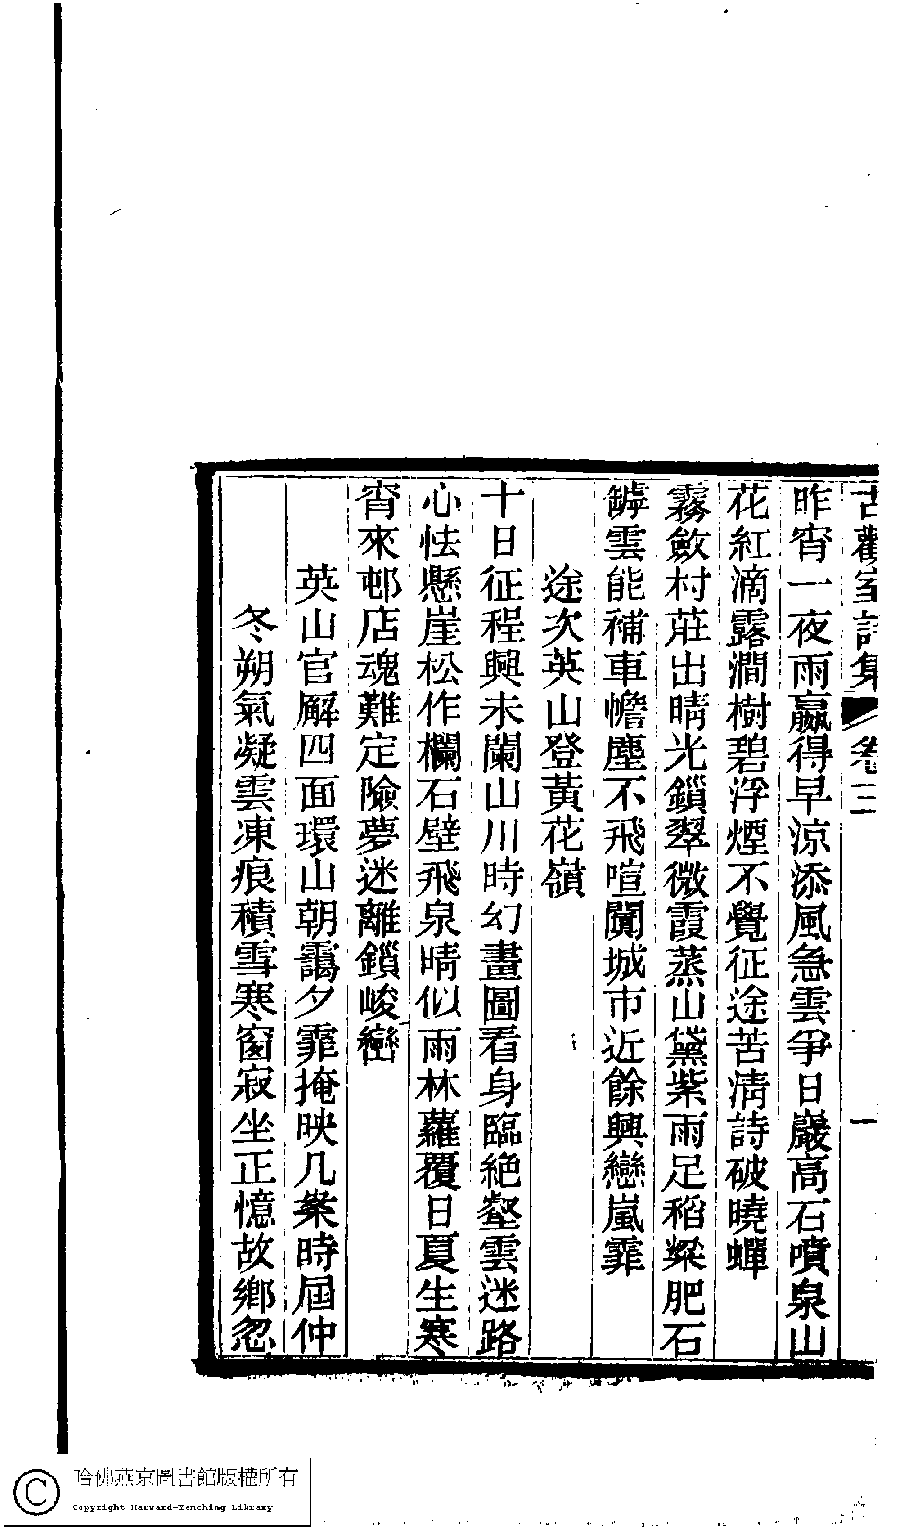 古歡室詩集 卷三 一
昨宵一夜雨贏得早涼添風急雲爭日巖高石噴泉山
花紅滴露澗樹碧浮煙不覺征途苦清詩破曉蟬
霧斂村莊出晴光鎖翠微霞蒸山黛紫雨足稻粱肥石
罅雲能補車幨塵不飛喧闐城市近餘興戀嵐霏
途次英山登黃花嶺
十日征程興未闌山川時幻畫圖看身臨絕壑雲迷路
心怯懸崖松作欄石壁飛泉晴似雨林蘿覆日夏生寒
宵來邨店魂難定險夢迷離鎖峻巒
英山官廨四面環山朝靄夕霏掩映几案時屆仲
冬朔氣凝雲凍痕積雪寒窗寂坐正憶故鄉忽
哈佛燕京圖書館版權所有
Copyright Harvard-Yenching Library